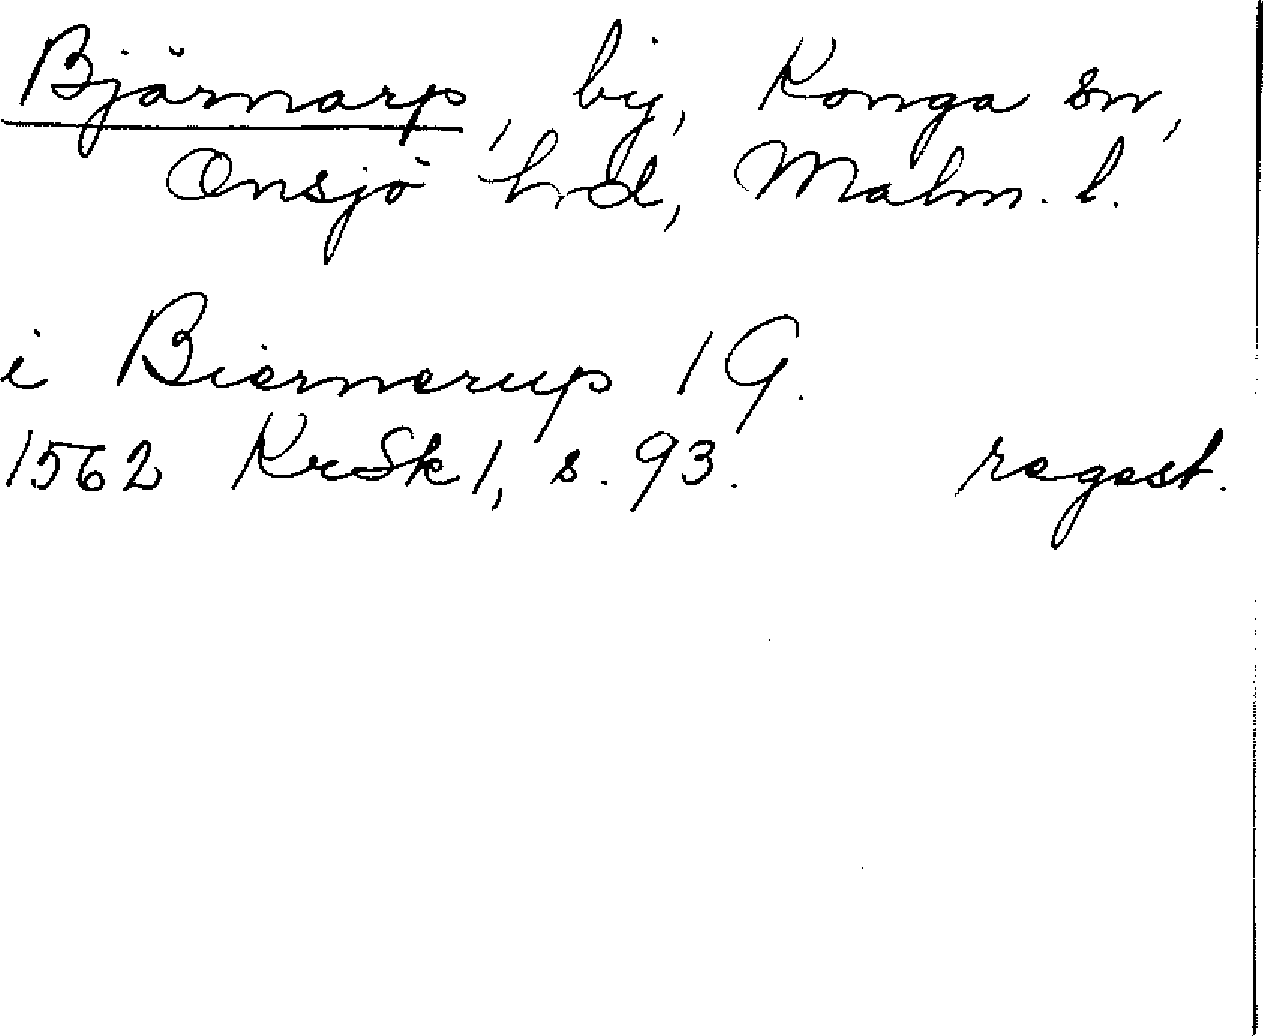 Bjärnarp, by, Konga sn,
Onsjö hrd, Malm. l.
i Biernerup 1 G.
1562 KrSk 1, s. 93. regest.